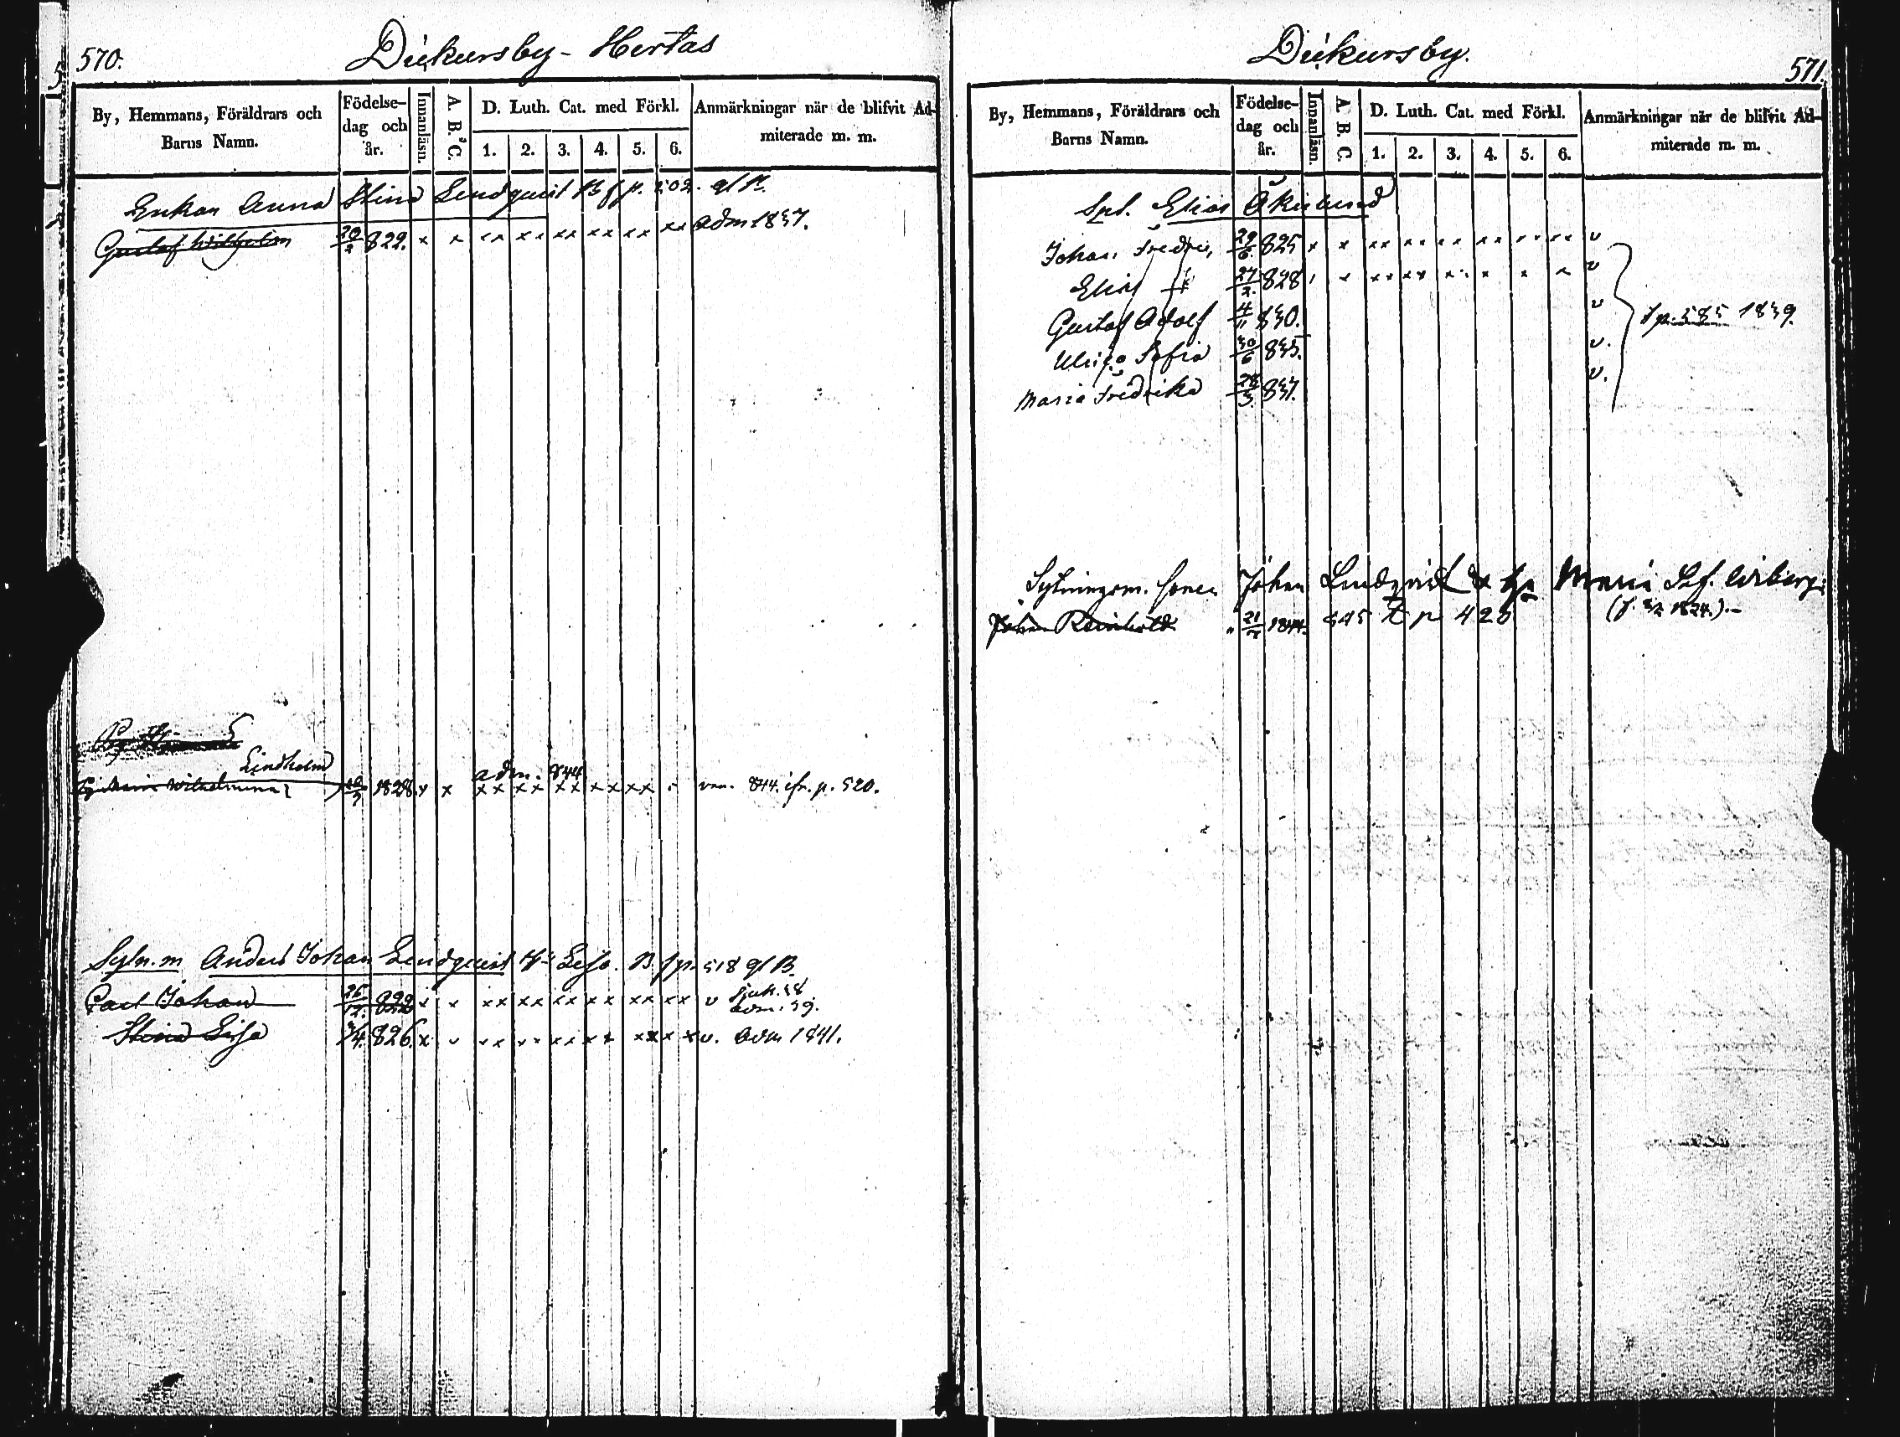 570. Dickursby - Hertas
By, Hemmans, Föräldrars och Barns Namn.
Födelse-dag och år.
Innanläsn.
A. B. C.
D. Luth. Cat. med Förkl.
1. 2. 3. 4. 5. 6.
Anmärkningar när de blifvit Ad-miterade m. m.
Enkan Anna Stina Lindquist B f p. 502. gl B.
Gustaf Wilhelm 20/2 822. x x xx xx xx xx xx xx adm 1837.
Lindholm
Maria Wilhelmina 1828. x x xx xx xx xx xx adm. 844 844. jfr. p. 520.
Sytn.m Anders Johan Lindquist H. Lisa. B f p. 518 gl B.
Carl Johan 25/12. 822 x x xx xx xx xx xx xx v sjuk. 38
adm. 39.
Stina Lisa 9/4. 826. x xx xx xx xx xx xx v. adm 1841.
Dickursby. 571.
By, Hemmans, Föräldrars och Barns Namn.
Födelse-dag och år.
Innanläsn.
A. B. C
D. Luth. Cat. med Förkl.
1. 2. 3. 4. 5. 6.
Anmärkningar när de blifvit Ad-miterade m. m.
Spl. Elias Åkerlund
Johan Fredric, 29/6. 825 x x xx xx xx xx xx xx v
Elias 27/2. 828 v
Gustaf Adolf 4/11 830. v f p. 585 1839.
Ulrica Sofia 30/6 835. v.
Maria Fredrika 28/3. 837. v.
Sytningsm. sonen Johan Lindqvist & h. Maria Sof. Wiberg
Johan Reinhold 21/12 1844. 845 t p 428 1824.) -